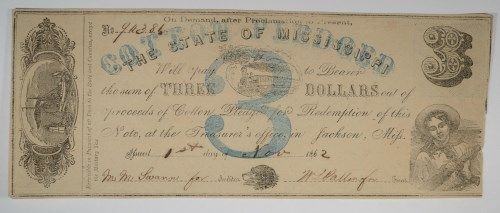 On Demand, after Proclamation to Present,
No. 94386
COTTON PLEDGED
THE STATE OF MISSISSIPPI
Will pay to Bearer
the sum of THREE DOLLARS out of
proceeds of Cotton Pledged for Redemption of this
Note, at the Treasurer's office, in Jackson, Miss.
Issued 1st day of Nov 1862
for Auditor
3
3
3